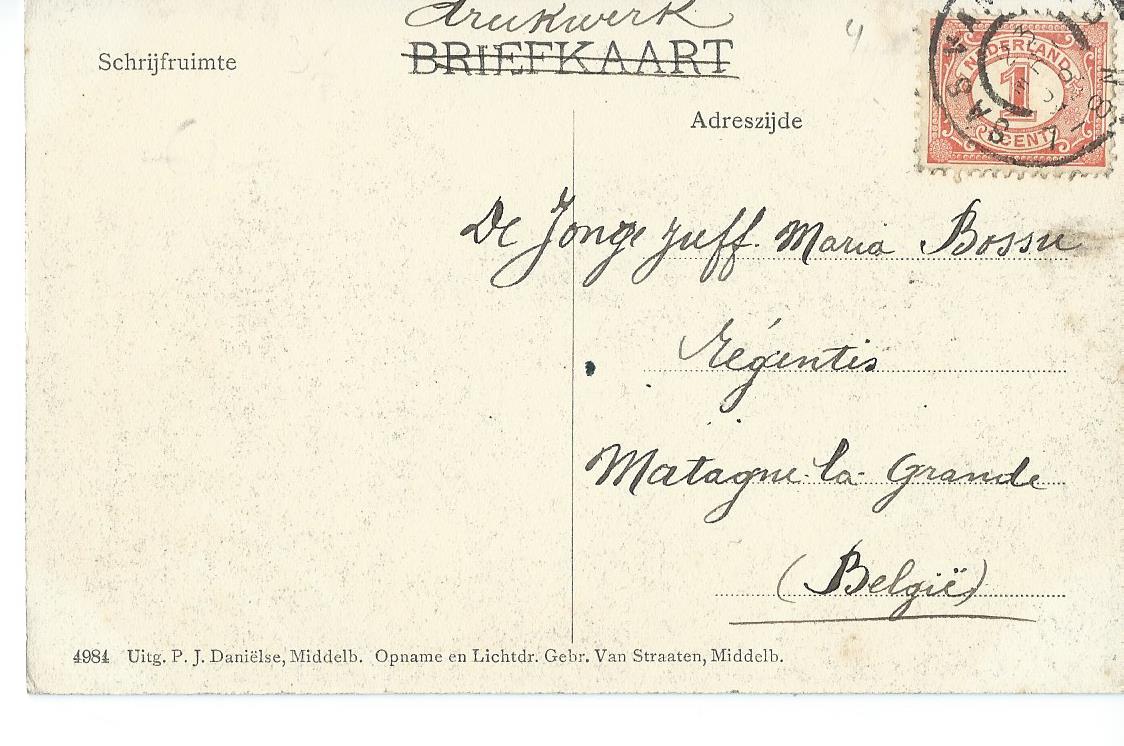 drukwerk
BRIEFKAART
Schrijfruimte
Adreszijde
4
NEDERLAND
1
CENT
SAS VAN
7-8 N
De Jonge Jueff. Maria Bossu
Régentis
Matagne-la-Grande
(België)
4984 Uitg. P. J. Daniëlse, Middelb. Opname en Lichtdr. Gebr. Van Straaten, Middelb.